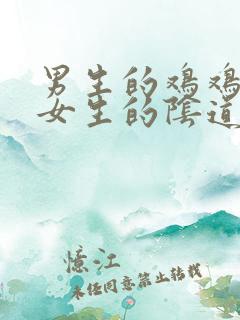 男生的鸡鸡
女生的陰道
憶江
未经同意禁止转载